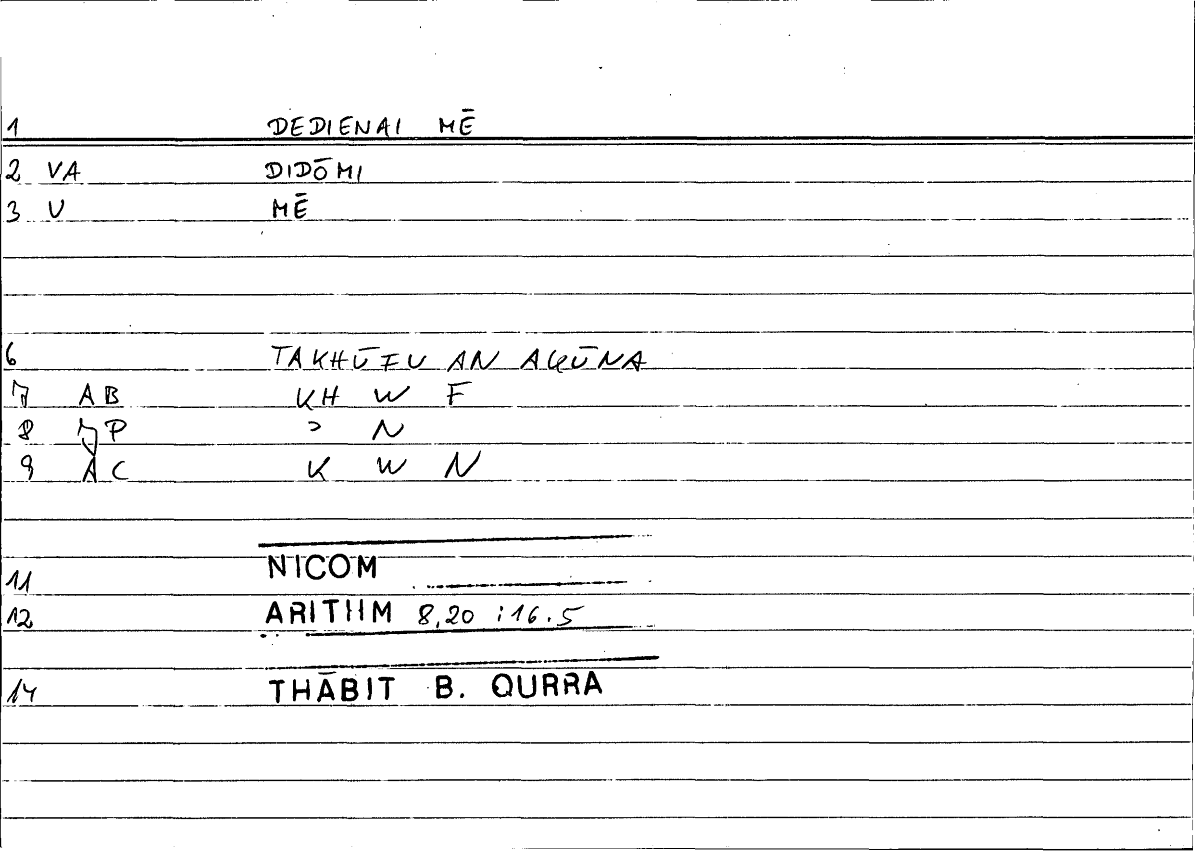 1 DEDIENAI MĒ
2 VA DIDŌMI
3 V MĒ
6 TAKHŪFU AN AKŪNA
7 AB KH W F
8 P ʾ N
9 AC K W N
11 NICOM
12 ARITHM 8,20 ; 16.5
14 THĀBIT B. QURRA